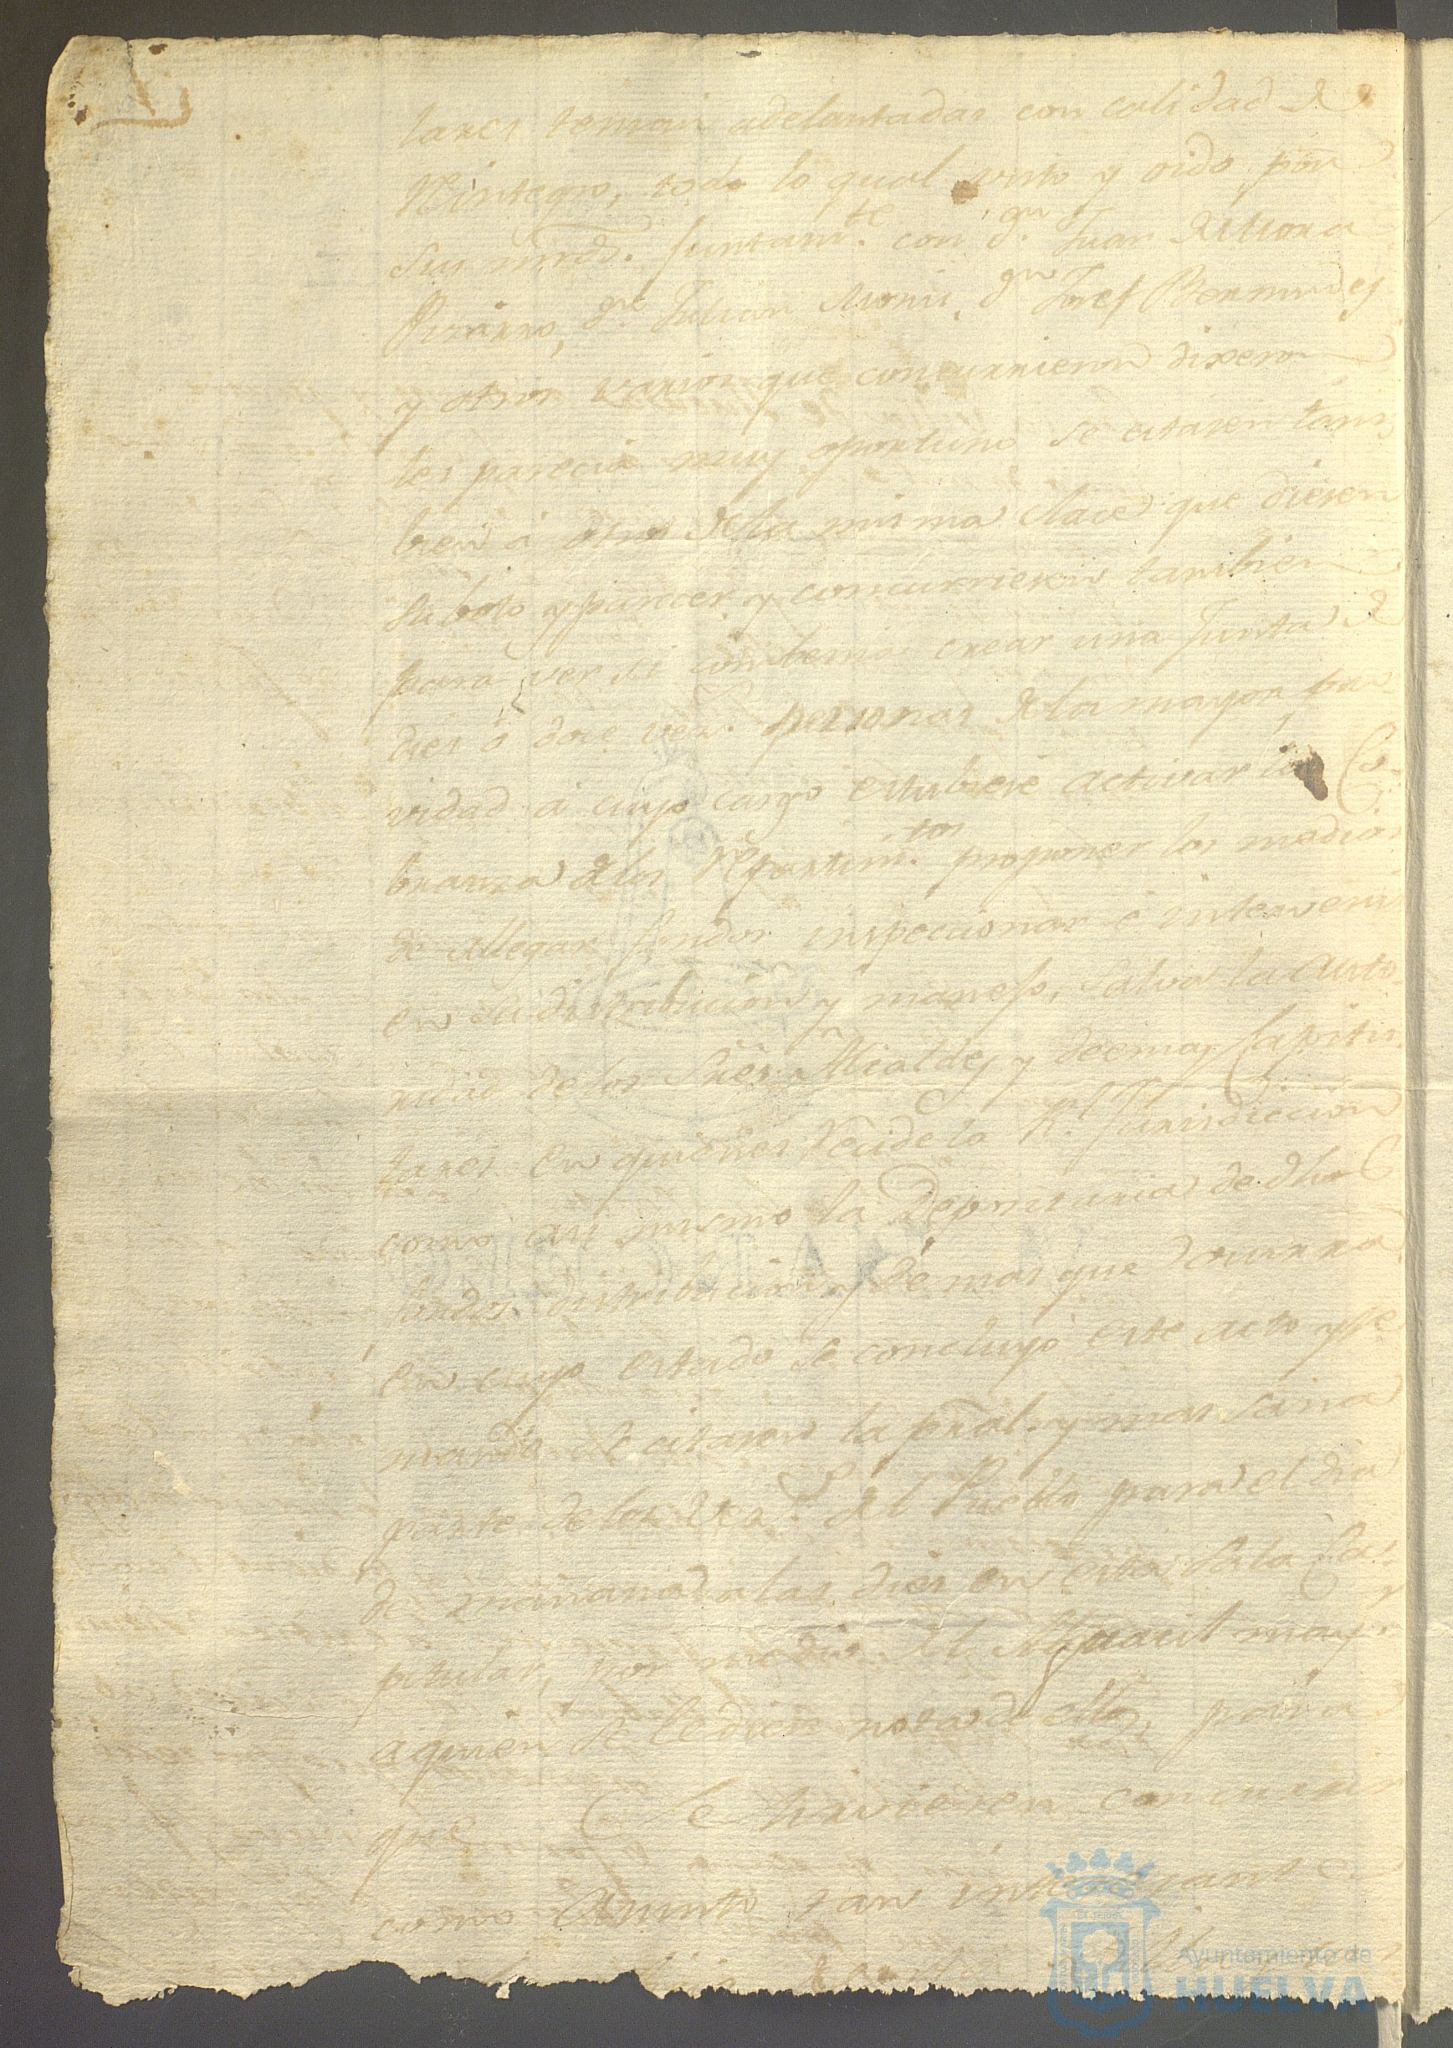 tares tenian adelantadas con calidad de
Reintegro, todo lo qual visto y oido por
sus mrds. juntamte. con dn. Juan de Mora
Pizarro, dn. Julian dn. Josef Bermudez
y otros varios que concurrieron dixeron
les parecia muy oportuno se citasen tam
bien a otros de la misma clace que diesen
su boto y parecer y concurriesen tambien
para ver si conbenia crear una Junta de
dies ó doce personas de la mayor
vidad á cuyo cargo estubiese activar la Co
branza de los Repartimtos. proponer los medios
de allegar fondos inspeccionar é intervenir
en su distribucion y manejo, salva la auto
ridad de los Sres. Alcaldes y deemas Capitu
lares en quienes recide la Rl. Jurisdiccion
como asi mismo la Depocitaria de dhos
fondos distribucion y demas que ocurra
en cuyo estado se concluyó este acto y se
mandó se citasen la pral. y mas sana
parte de los del Pueblo para el dia
de mañana a las dies en esta Sala Ca
pitular, por medio del Alguacil mayor
a quien se le diese nota de ellos, para
que se hiciesen concurrir
como Asunto tan interesante